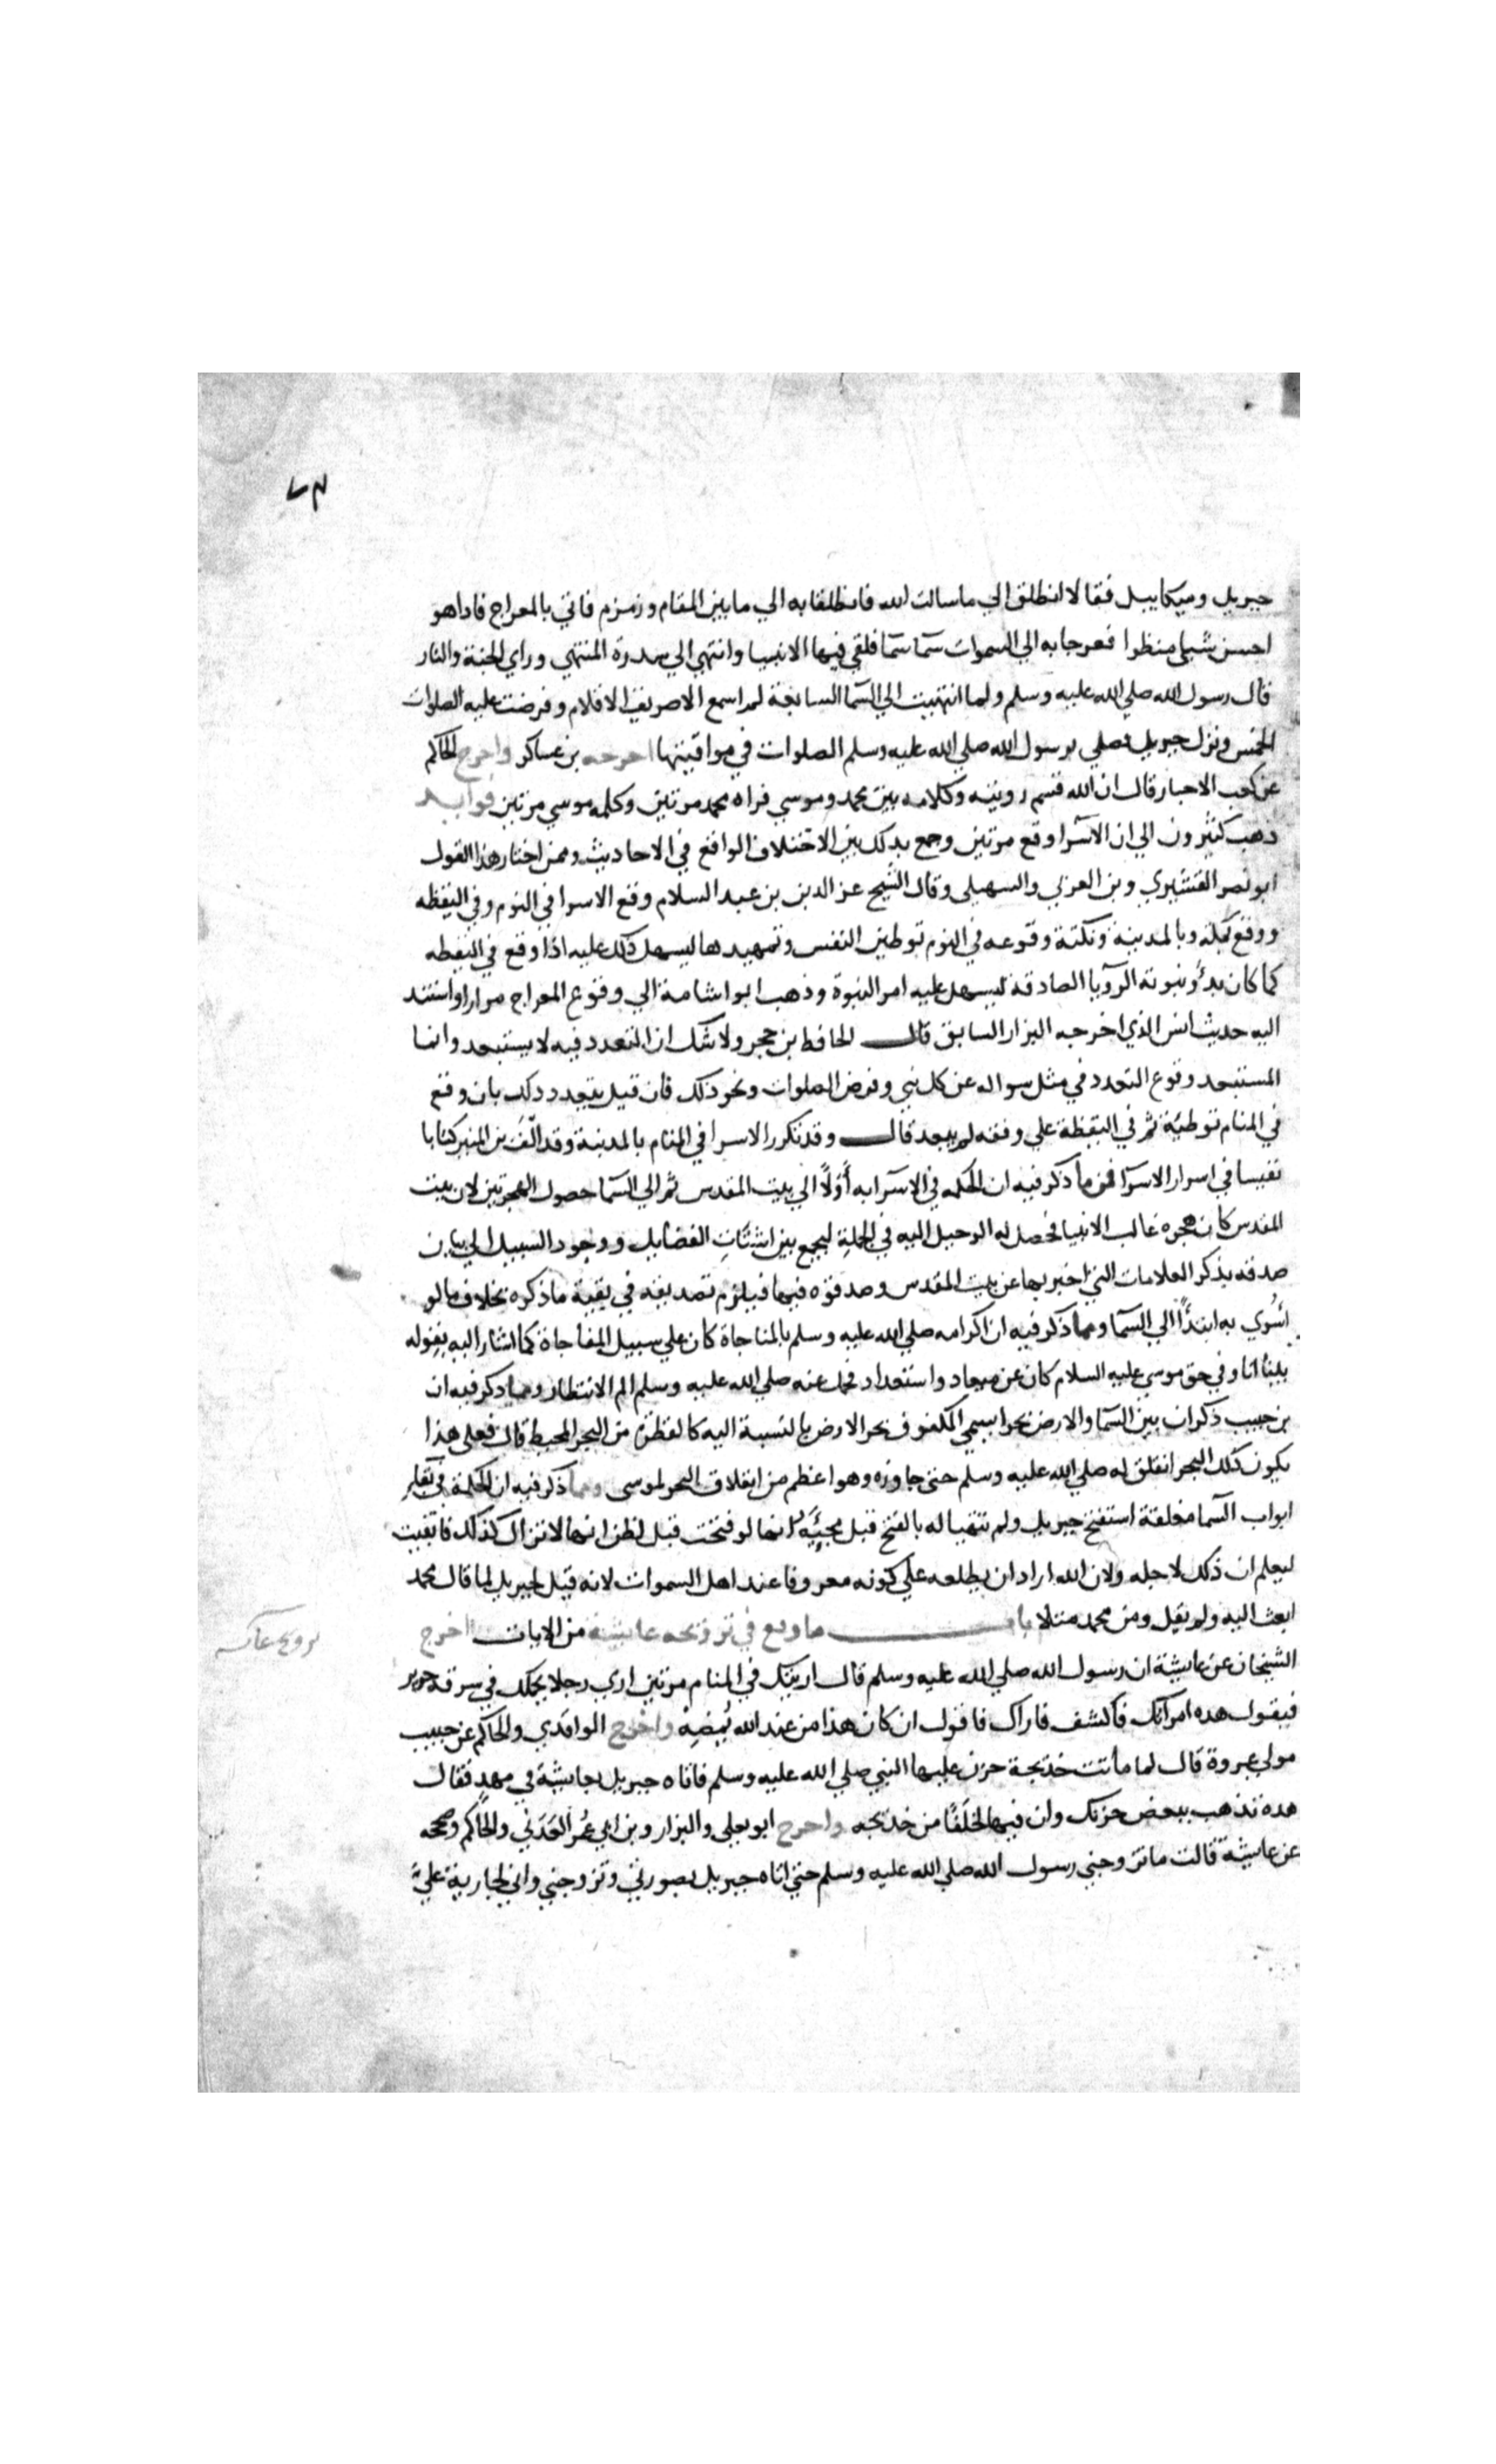 ٧٣
جبريل وميكاييل فقالا انطلق الي ما سالت الله فانطلقا به الي ما بين المقام وزمزم فاتي بالمعراج فاداهو
احسن شيا منظرا فعرجا به الي السموات سما سما فلقي فيها الانبيا وانتهي الي سدرة المنتهي وراي الجنة والنار
قال رسول الله صلي الله عليه وسلم ولما انتهيت الي السما السابعة لمر اسمع الا صريف الاقلام وفرضت عليه الصلوات
الخمس ونزل جبريل فصلي برسول الله صلي الله عليه وسلم الصلوات في مواقيتها اخرجه بن عساكر واخرج الحاكم
عن كعب الاحبار قال ان الله قسم رويته وكلامه بين محمد وموسي فراه محمد مرتين وكلمه موسي مرتين فوايد
ذهب كثيرون الي ان الاسرا وقع مرتين وجمع بدلك بين الاختلاف الواقع في الاحاديث وممن اختار هذا القول
ابو نصر القشيري وبن العربي والسهيلي وقال الشيح عز الدين بن عبد السلام وقع الاسرا في النوم وفي اليقظه
ووقع بمكة وبالمدينة ونكتة وقوعه في النوم توطين النفس وتمهيدها ليسهل ذلك عليه اذا وقع في اليقظه
كما كان بدؤ نبوته الرويا الصادقة ليسهل عليه امر النبوة وذهب ابوا شامة الي وقوع المعراج مرارا واستند
اليه حديث انس الذي اخرجه البزار السابق قال الحافط بن حجر ولا شك ان التعدد فيه لا يستبعد وانما
المستبعد وقوع التعدد في مثل سواله عن كل نبي وفرض الصلوات ونحو ذلك فان قيل بتعدد دلك بان وقع
في المنام توطية ثم في اليقظة علي وفقه لم يبعد قال وقد تكرر الاسرا في المنام بالمدينة وقد الف بن المنير كتابا
نفيسا في اسرار الاسرا فمن ما ذكر فيه ان الحكمه في الاسرا به أولاً الي بيت المقدس ثم الي السما حصول الهجرتين لان بيت
المقدس كان هجره غالب الانبيا فحصل له الرحيل اليه في الجملة ليجمع بين اشتات الفضايل ووجود السبيل الي بيان
صدقه بذكر العلامات التي اخبر بها عن بيت المقدس وصدقوه فيها فيلزم تصديقه في بقية ما ذكره بخلاف ما لو
أسُري به ابتداً الي السما ومما ذكر فيه ان اكرامه صلي الله عليه وسلم بالمناجاة كان علي سبيل المفاجاة كما اشار اليه بقوله
بينا انا وفي حق موسي عليه السلام كان عن ميعاد واستعداد فحمل عنه صلي الله عليه وسلم الم الانتظار ومما دكر فيه ان
بن حبيب ذكر ان بين السما والارض بحرا يسمي المكفوف بحر الارض بالنسبة اليه كالقطرة من البحر المحيط قال فعلي هذا
يكون ذلك البحر انفلق له صلي الله عليه وسلم حتي جاوزه وهو اعظم من انفلاق البحر لموسي ومما ذكر فيه ان الحكمة في
ابواب السما مغلقة استفتح جبريل ولم تتهيا له بالفتح قبل مجيئه انها لو فتحت قبل لظن انها لا تزال كذلك فابقيت
ليعلم ان ذلك لاجله ولان الله اراد ان يطلعه علي كونه معروفا عند اهل السموات لانه قيل لجبريل لما قال محمد
ابعث اليه ولم يقل ومن محمد مثلا باب ما وقع في تزويجه عايشة من الايات اخرج
الشيخان عن عايشة ان رسول الله صلي الله عليه وسلم قال اريتك في المنام مرتين اري رجلا يحملك في سرقه حرير
فيقول هده امراتك فاكشف فاراك فاقول ان كان هذا من عند الله يُمضِهْ واخرج الواقدي والحاكم عن حبيب
مولي عروة قال لما ماتت خديجة حزن عليها النبي صلي الله عليه وسلم فاتاه جبريل بعايشة في مهد فقال
هده تذهب ببعض حزنك وان فيها لخلَفًا من خديجه واخرج ابو يعلي والبزار وبن ابي عُمر العَدَني والحاكم وصححه
عن عايشة قالت ما تزوجني رسول الله صلي الله عليه وسلم حتي اتاه جبريل بصورتي وتزوجني واني لجارية علي